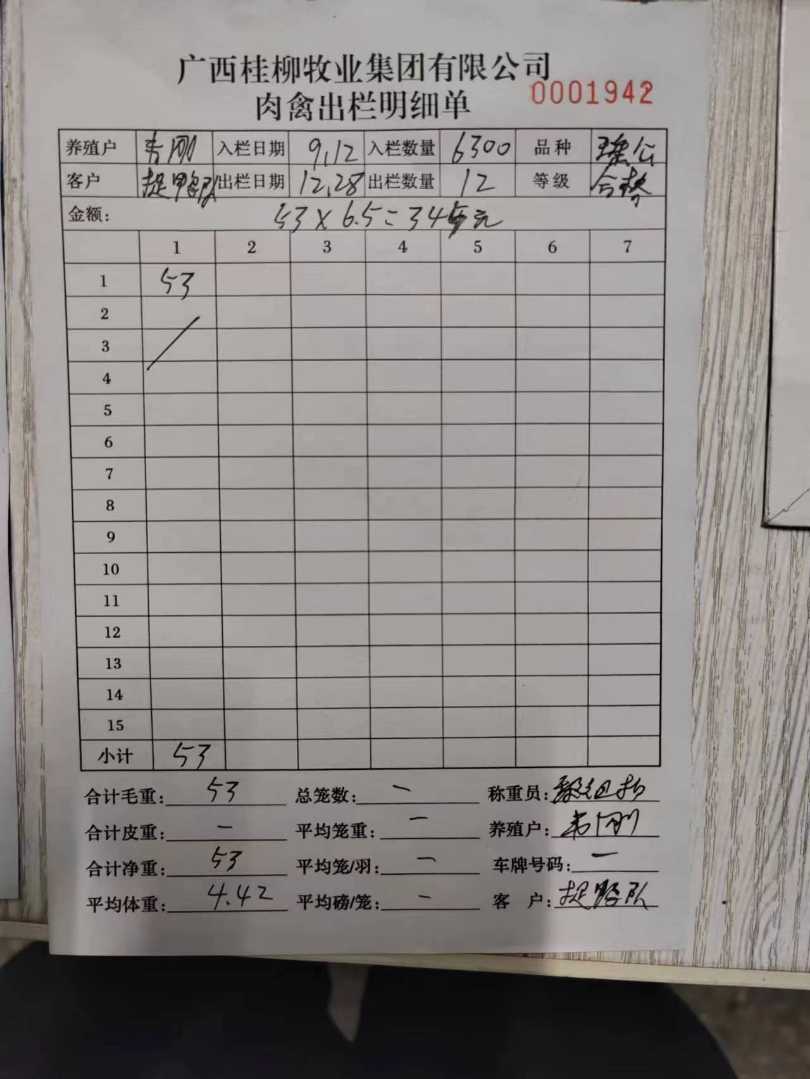 广西桂柳牧业集团有限公司
肉禽出栏明细单 0001942
养殖户 韦刚 入栏日期 9,12 入栏数量 6300 品种 瑶公
客户 捉鸭队 出栏日期 12,28 出栏数量 12 等级 合格
金额: 53×6.5=345元
1 2 3 4 5 6 7
1 53
2
3
4
5
6
7
8
9
10
11
12
13
14
15
小计 53
合计毛重: 53 总笼数: - 称重员:
合计皮重: - 平均笼重: - 养殖户: 韦刚
合计净重: 53 平均笼/羽: - 车牌号码: -
平均体重: 4.42 平均磅/笼: - 客 户: 捉鸭队